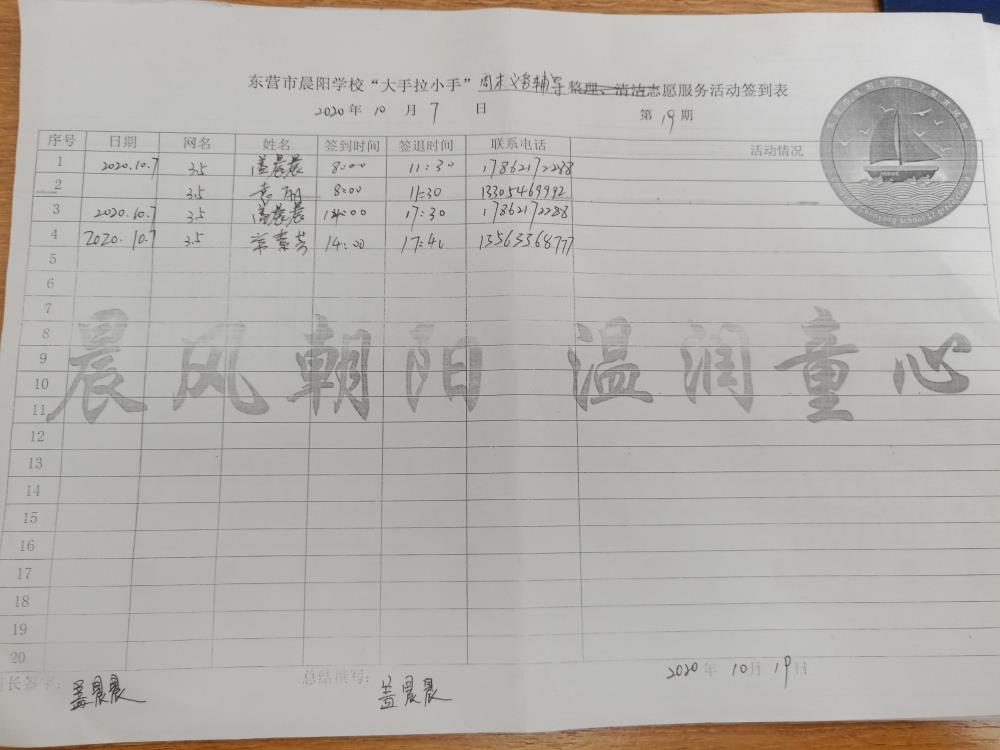 东营市晨阳学校“大手拉小手”周末义务辅导整理、清洁志愿服务活动签到表
2020年10月7日 第19期
序号 日期 网名 姓名 签到时间 签退时间 联系电话 活动情况
1 2020.10.7 3.5 盖晨晨 8:00 11:30 17862172288
2 3.5 8:00 11:30 13305469992
3 2020.10.7 3.5 盖晨晨 14:00 17:30 17862172288
4 2020.10.7 3.5 常素芳 14:00 17:40 13563368777
5
6
7
8
晨风朝阳 温润童心
9
10
11
12
13
14
15
16
17
18
19
20
长签字:盖晨晨 总结填写:盖晨晨 2020年10月19日